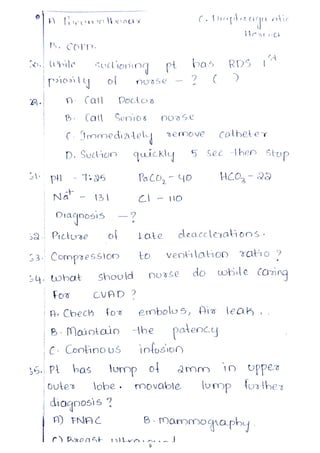 A Pneumothorax C. Diaphragmatic
Hernia
B. COPD.
20. While suctioning pt has RDS 1st
priority of nurse - ? ( )
A. Call Doctor
B. Call Senior nurse
C. Immediately remove catheter
D. Suction quickly 5 sec then stop
31. pH - 7.25 PaCO2 - 40 HCO3 - 22
Na+ - 131 Cl - 110
Diagnosis - ?
32. Picture of Late deaccelerations.
33. Compression to ventilation ratio ?
34. What should nurse do while caring
for CVAD ?
A. Check for embolus, Air leak . .
B. Maintain the patency
C. Continous infusion
35. Pt has lump of 2mm in upper
outer lobe. movable lump further
diagnosis ?
A) FNAC B. mammography.
C) Breast